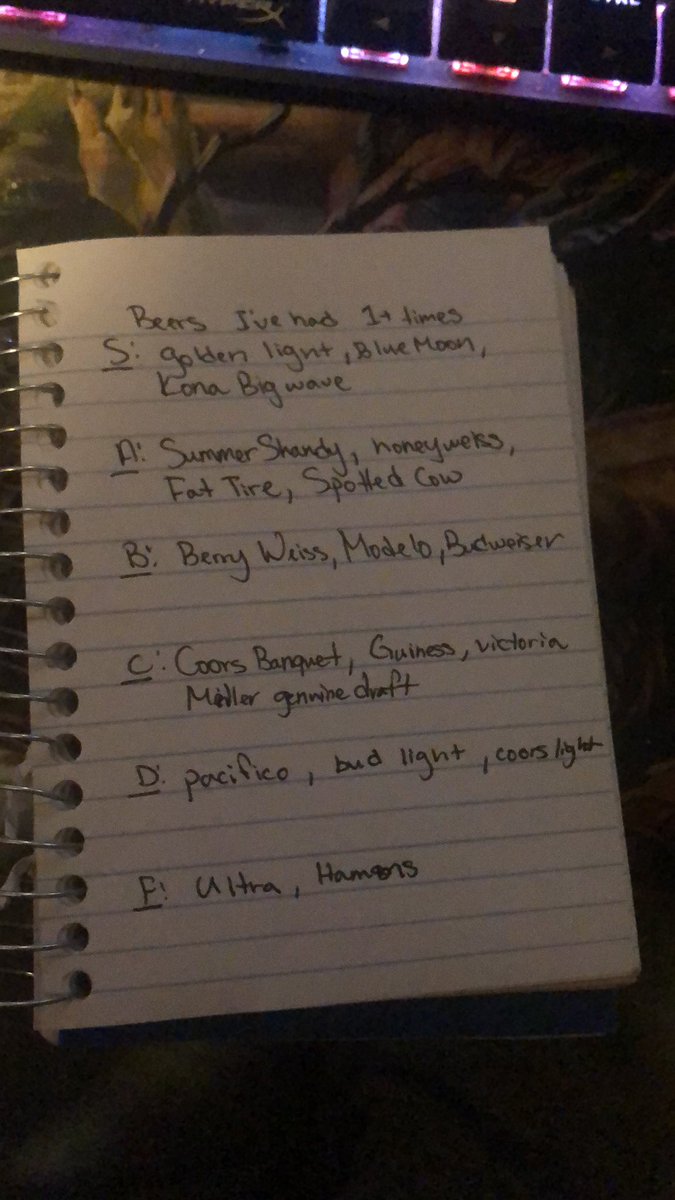 HYPERX
Beers I've had 1+ times
S: golden light, Blue Moon,
Kona Big wave
A: Summer Shandy, honeyweiss,
Fat Tire, Spotted Cow
B: Berry Weiss, Modelo, Budweiser
C: Coors Banquet, Guiness, victoria
Miller genuine draft
D: pacifico, bud light, coors light
F: Ultra, Hamms